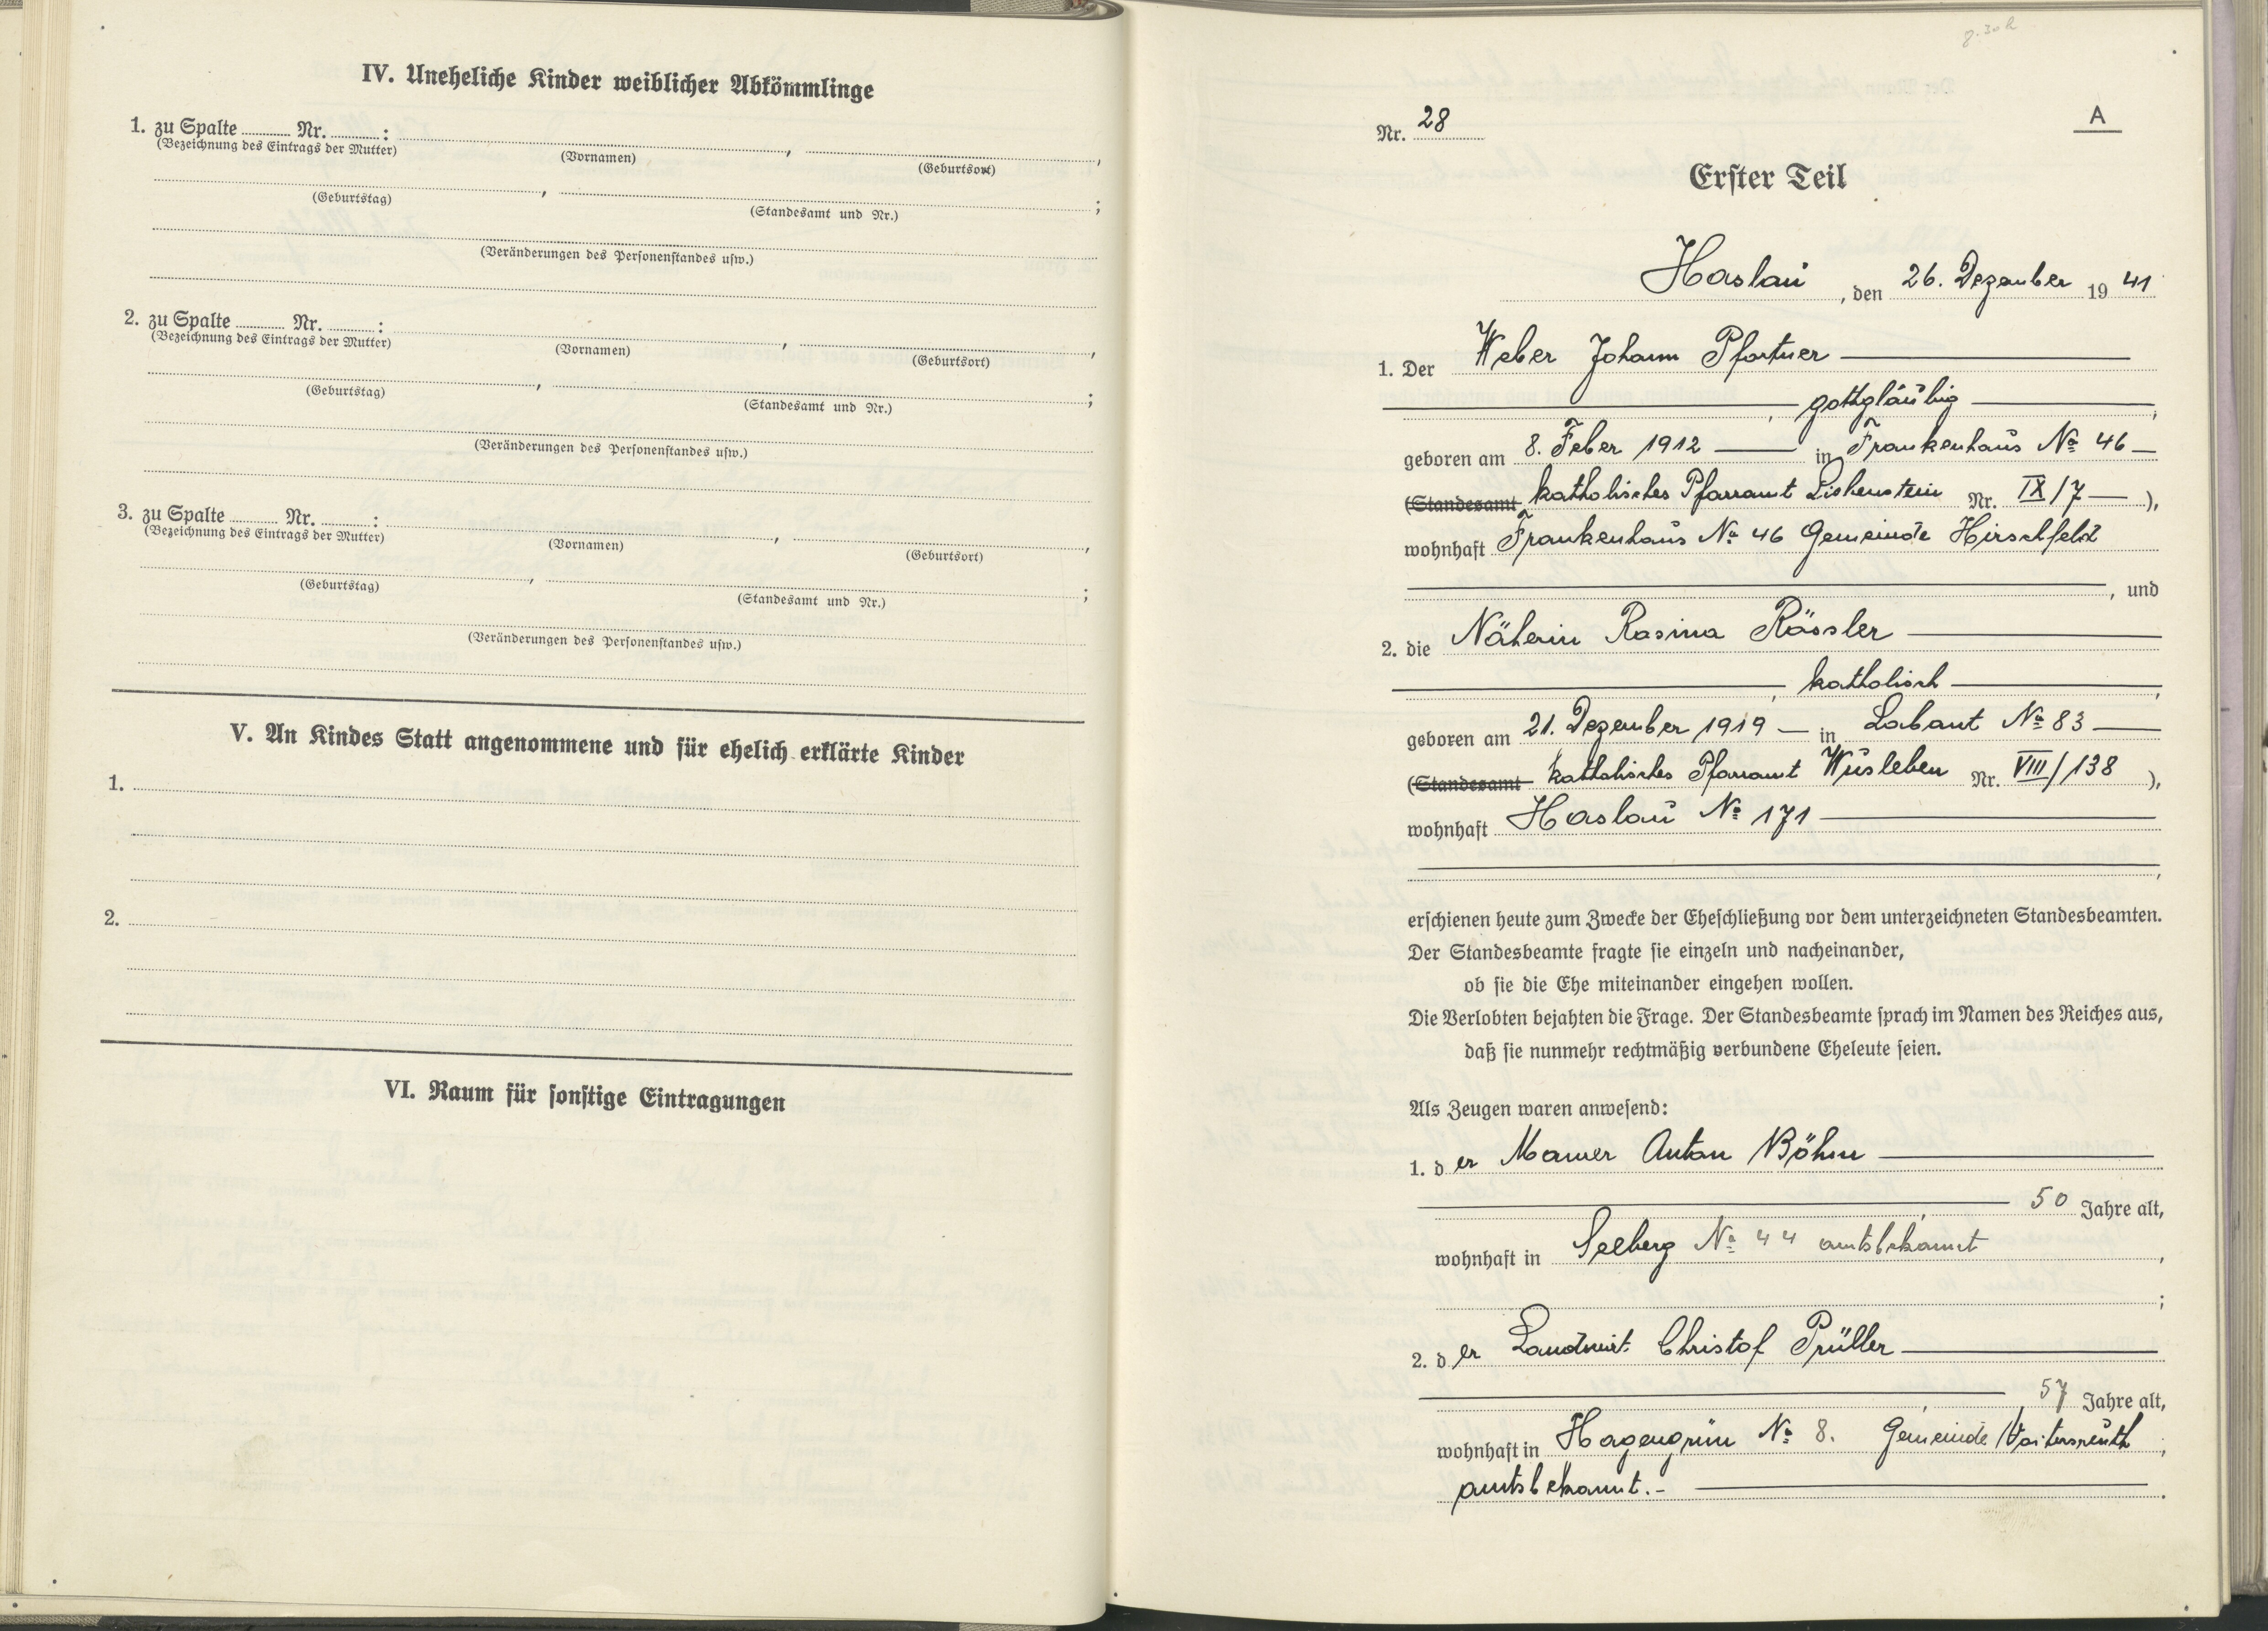 IV. Uneheliche Kinder weiblicher Abkömmlinge
1. zu Spalte ........ Nr. ........ :
(Bezeichnung des Eintrags der Mutter)
(Vornamen)
(Geburtsort)
(Geburtstag)
(Standesamt und Nr.)
(Veränderungen des Personenstandes usw.)
2. zu Spalte ........ Nr. ........ :
(Bezeichnung des Eintrags der Mutter)
(Vornamen)
(Geburtsort)
(Geburtstag)
(Standesamt und Nr.)
(Veränderungen des Personenstandes usw.)
3. zu Spalte ........ Nr. ........ :
(Bezeichnung des Eintrags der Mutter)
(Vornamen)
(Geburtsort)
(Geburtstag)
(Standesamt und Nr.)
(Veränderungen des Personenstandes usw.)
V. An Kindes Statt angenommene und für ehelich erklärte Kinder
1.
2.
VI. Raum für sonstige Eintragungen
A
Nr. 28
Erster Teil
Haslau, den 26. Dezember 1941
1. Der Weber Johann Pfortner
, gottgläubig ,
geboren am 8. Feber 1912 in Frankenhaus No 46
(Standesamt katholisches Pfarramt Liebenstein Nr. IX/7 ),
wohnhaft Frankenhaus No 46 Gemeinde Hirschfeld
, und
2. die Näherin Rosina Rössler
, katholisch ,
geboren am 21. Dezember 1919 in Labant No 83
(Standesamt katholisches Pfarramt Wusleben Nr. VIII/138 ),
wohnhaft Haslau No 171
erschienen heute zum Zwecke der Eheschließung vor dem unterzeichneten Standesbeamten.
Der Standesbeamte fragte sie einzeln und nacheinander,
ob sie die Ehe miteinander eingehen wollen.
Die Verlobten bejahten die Frage. Der Standesbeamte sprach im Namen des Reiches aus,
daß sie nunmehr rechtmäßig verbundene Eheleute seien.
Als Zeugen waren anwesend:
1. der Maurer Anton Böhm
, 50 Jahre alt,
wohnhaft in Seeberg No 44 amtsbekannt ,
;
2. der Landwirt Christof Prüller
, 57 Jahre alt,
wohnhaft in Hagengrün No 8. Gemeinde Voitersreuth ,
amtsbekannt.-